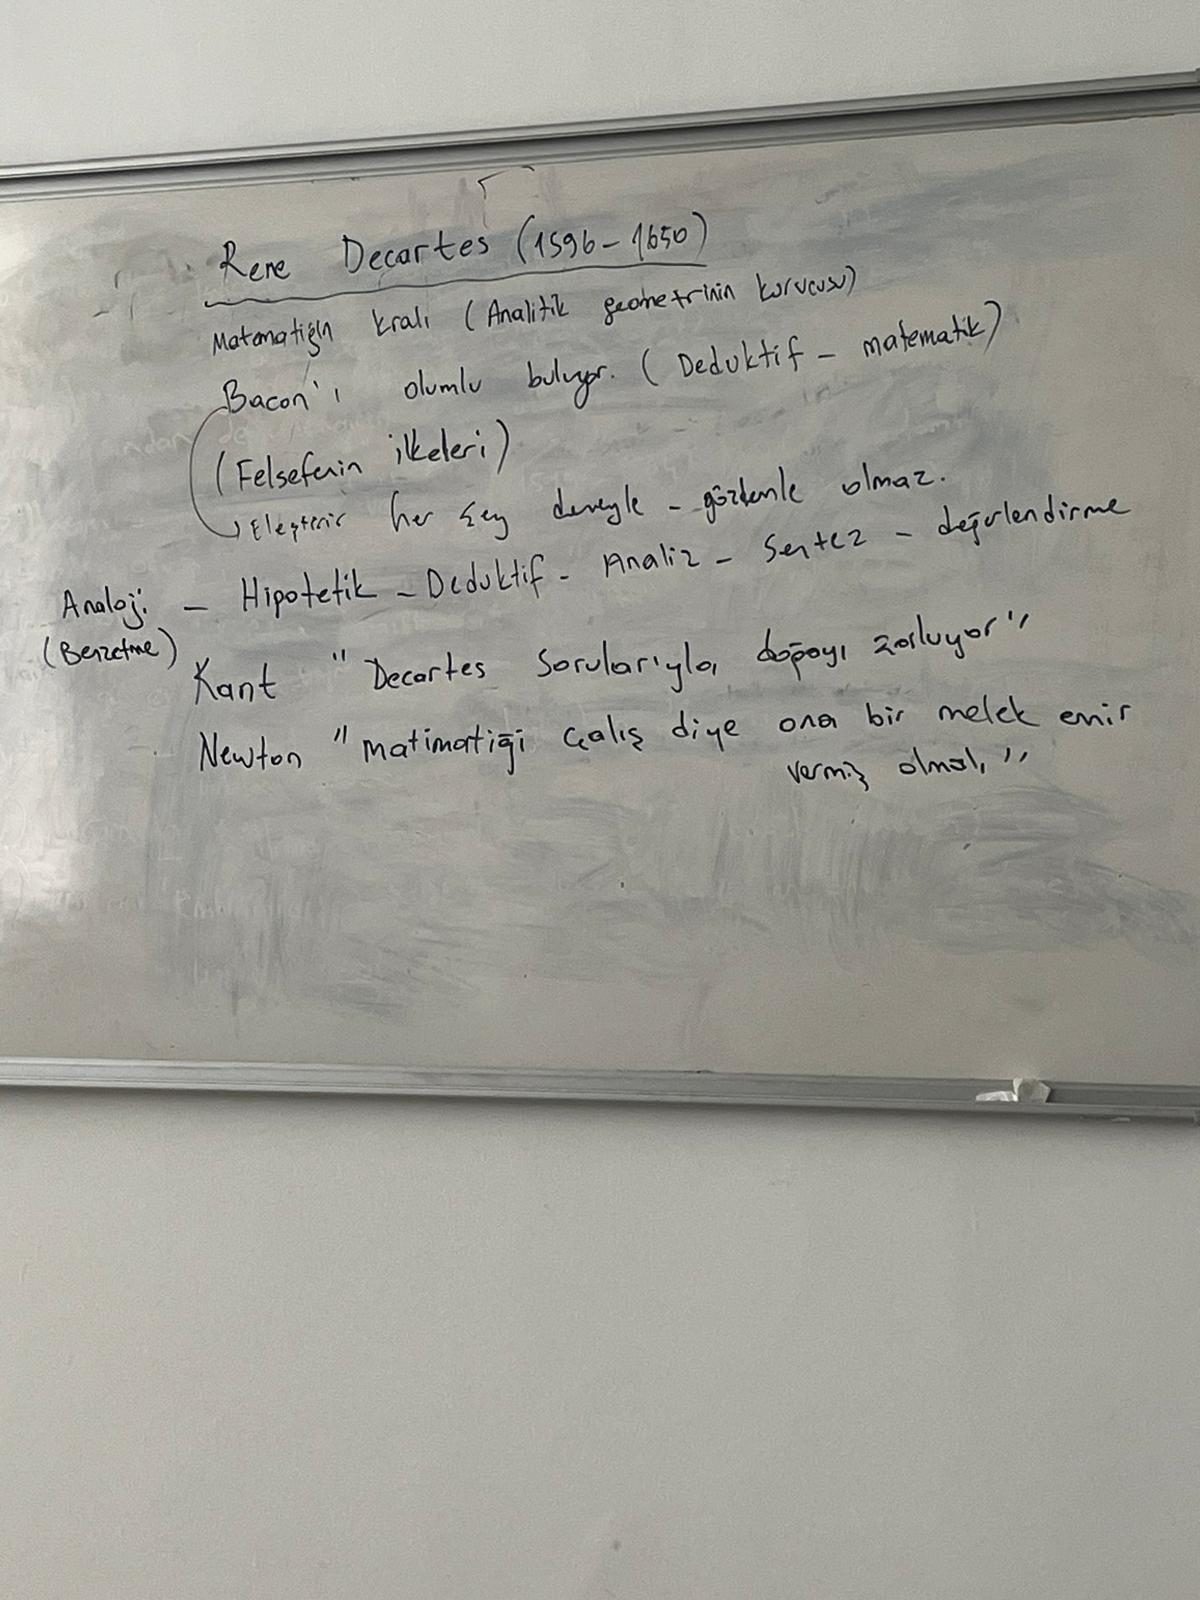 Rene Decartes (1596-1650)
Matematiğin kralı (Analitik geometrinin kurucusu)
Bacon'ı olumlu buluyor. (Deduktif - matematik)
(Felsefenin ilkeleri)
Eleştirir her şey deneyle - gözlemle olmaz.
Analoji - Hipotetik - Deduktif - Analiz - Sentez - değerlendirme
(Benzetme)
Kant "Decartes Soruları'yla doğayı zorluyor"
Newton "matimatiği çalış diye ona bir melek emir
vermiş olmalı"